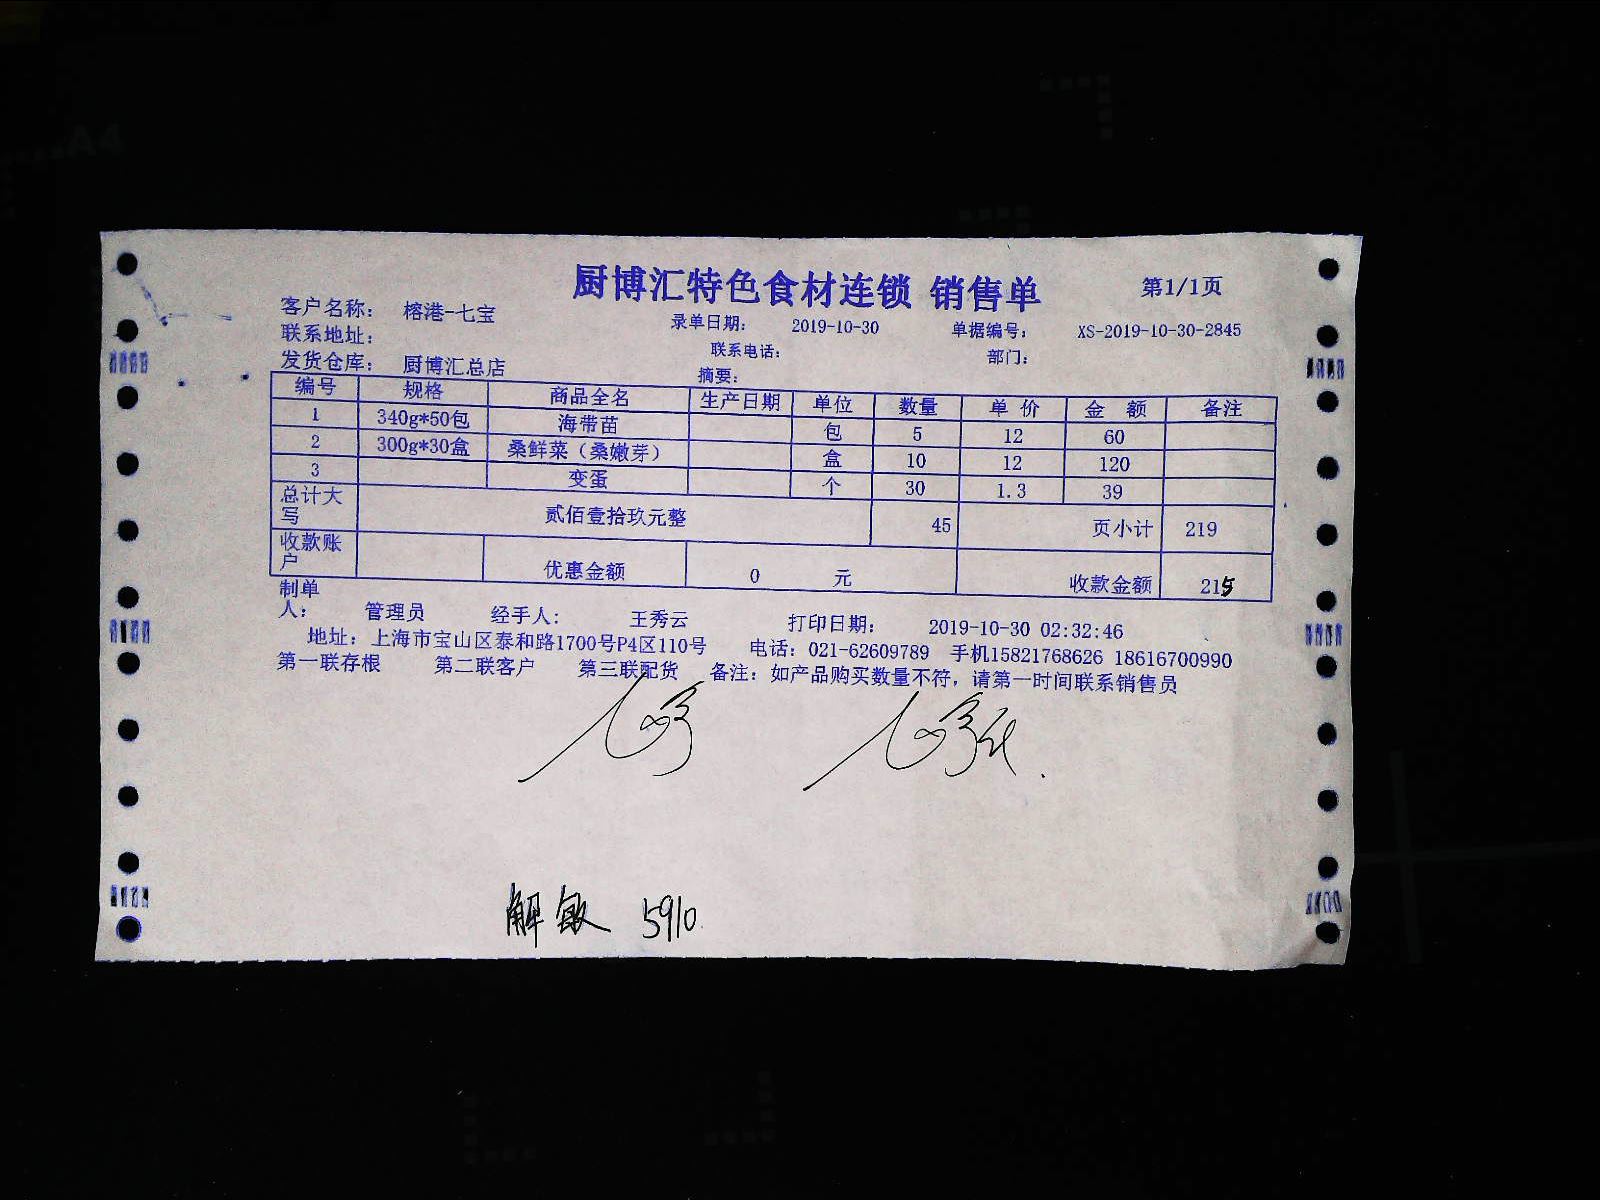 厨博汇特色食材连锁 销售单 第1/1页
客户名称： 榕港-七宝
录单日期： 2019-10-30 单据编号： XS-2019-10-30-2845
联系地址： 联系电话： 部门：
发货仓库： 厨博汇总店 摘要：
编号 规格 商品全名 生产日期 单位 数量 单 价 金 额 备注
1 340g*50包 海带苗 包 5 12 60
2 300g*30盒 桑鲜菜（桑嫩芽） 盒 10 12 120
3 变蛋 个 30 1.3 39
总计大写 贰佰壹拾玖元整 45 页小计 219
收款账户 优惠金额 0 元 收款金额 215
制单人： 管理员 经手人： 王秀云 打印日期： 2019-10-30 02:32:46
地址：上海市宝山区泰和路1700号P4区110号 电话：021-62609789 手机15821768626 18616700990
第一联存根 第二联客户 第三联配货 备注：如产品购买数量不符，请第一时间联系销售员
解敏 5910